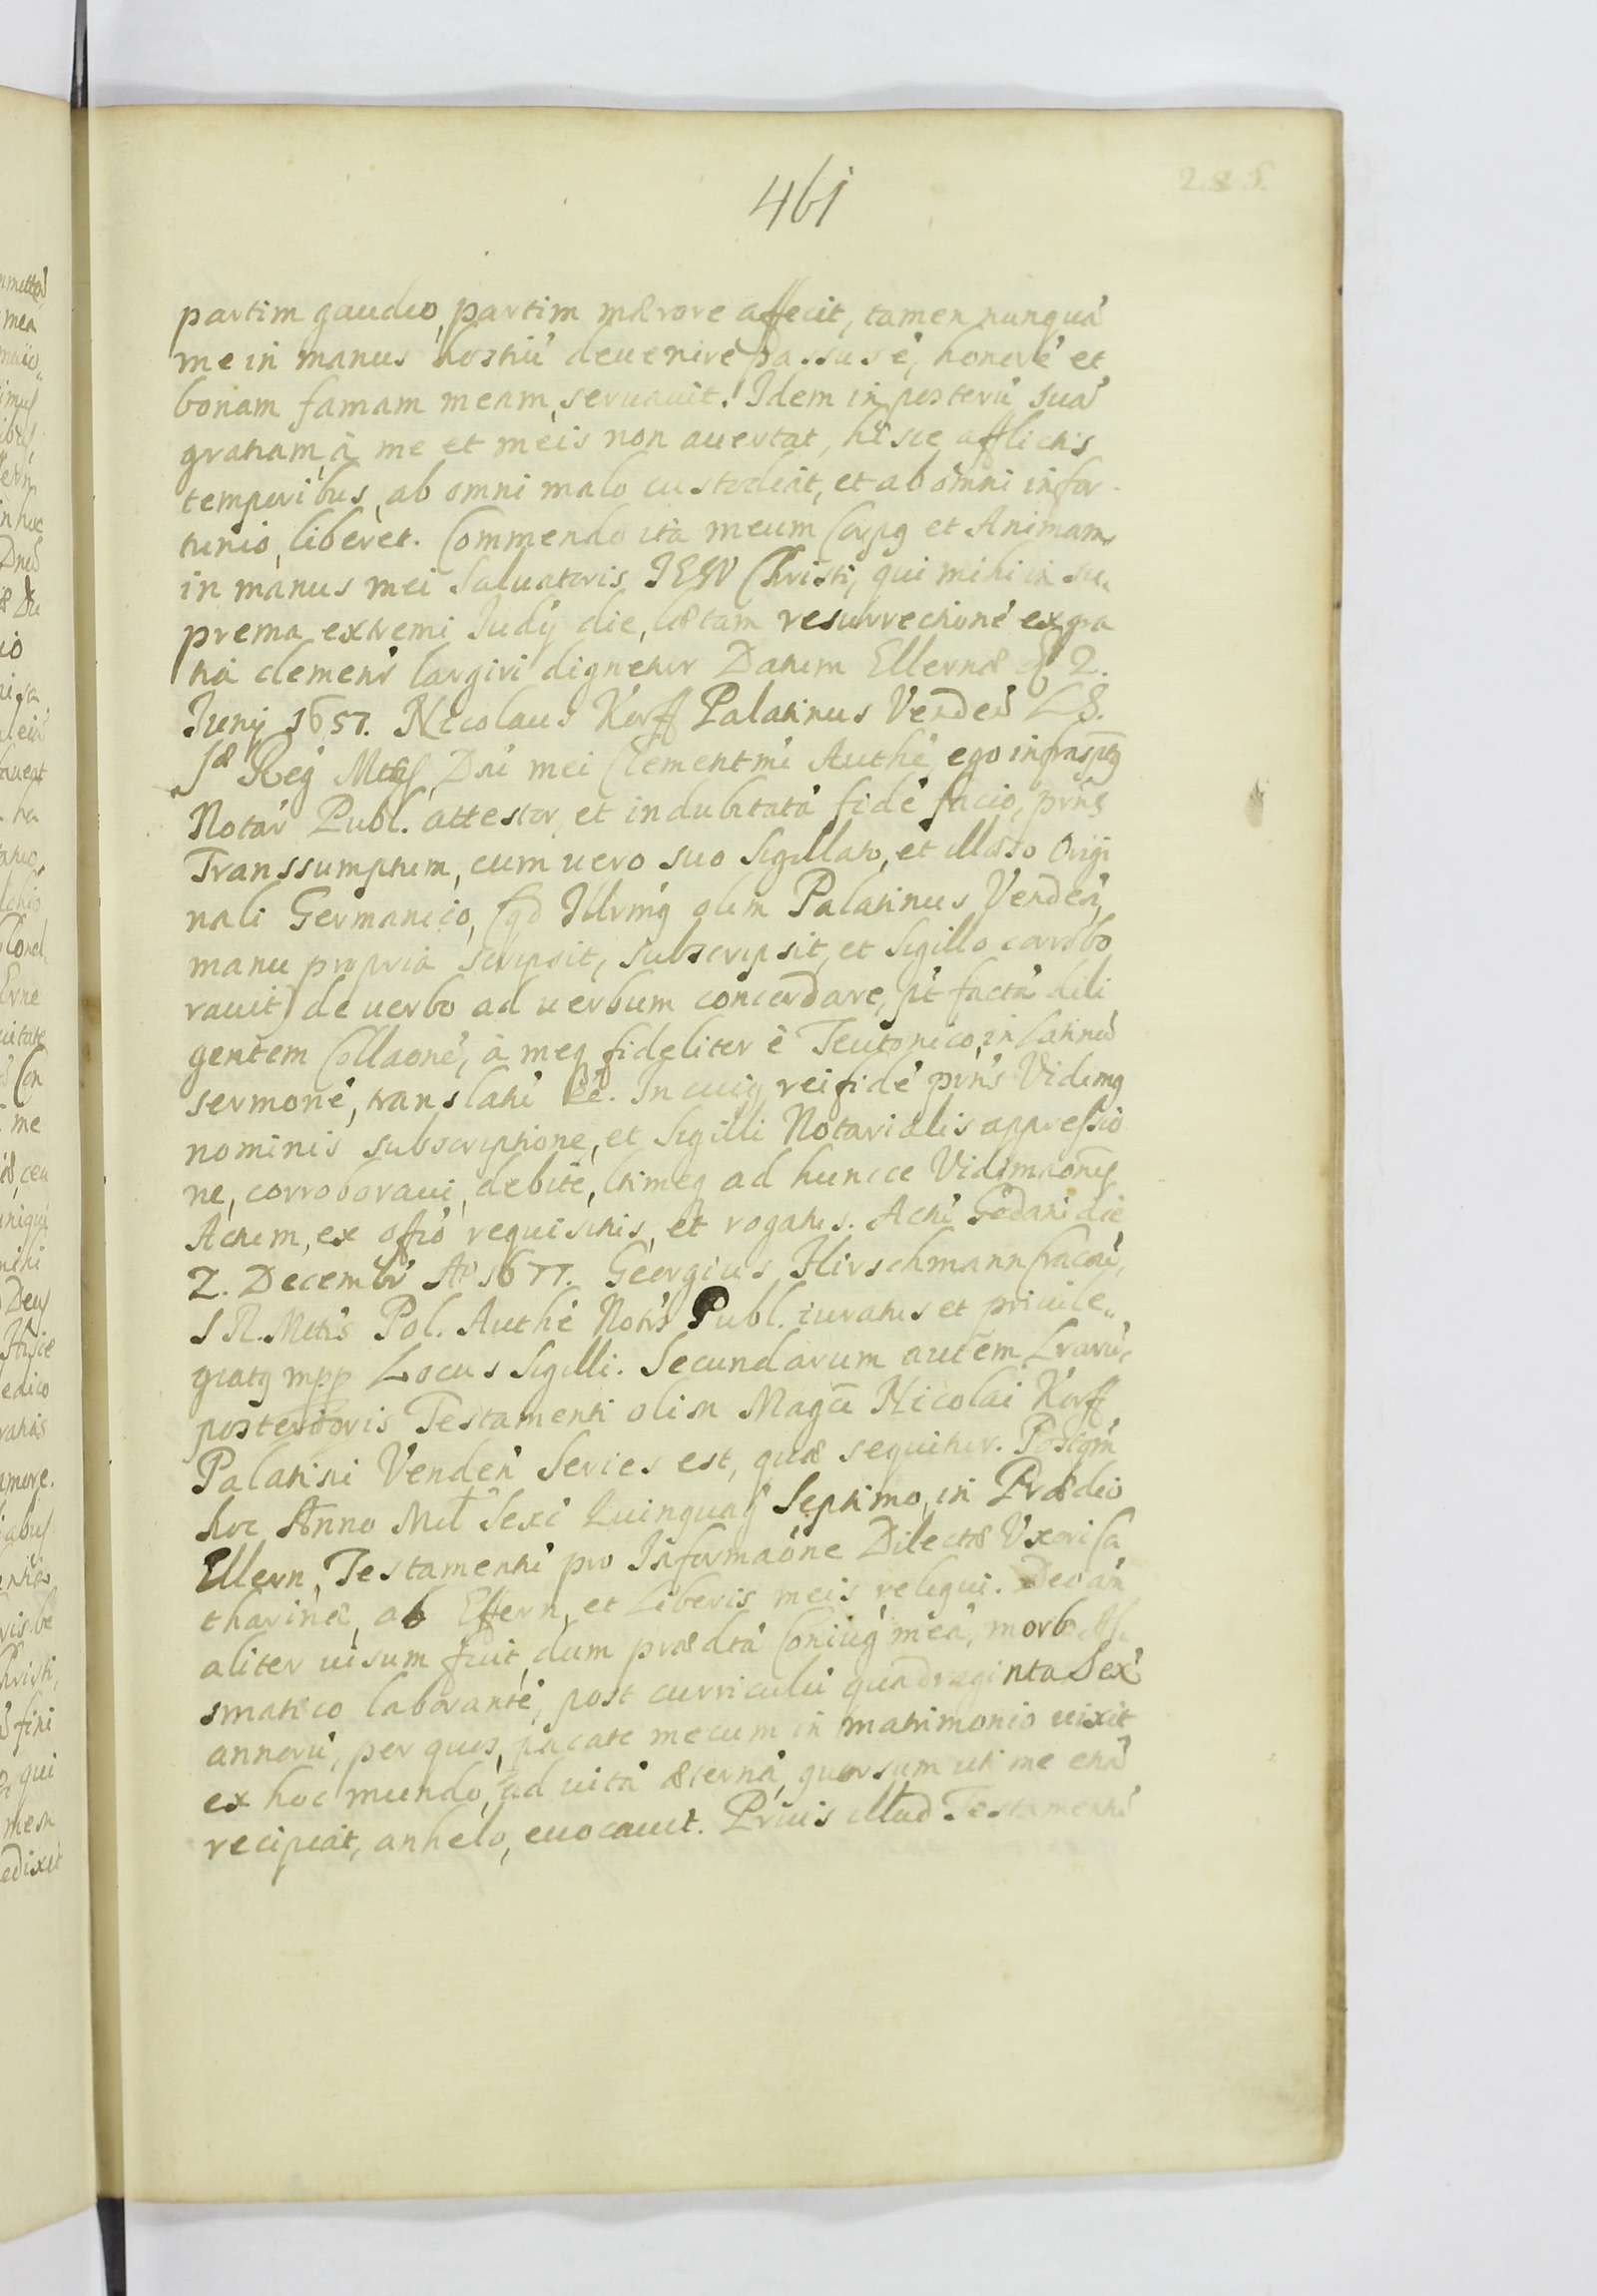 461
285.
partim gaudio, partim mærore affecit, tamen nunquá
me in manus hostiú deuenire passus é, honoré et
bonam famam meam, seruauit. Idem in posterú suá
gratiam, à me et meis non auertat, hisce afflictis
temporibus, ab omni malo custodiat, et ab omni infor
tunio, liberet. Commendo ita meum Corpq et Animam
in manus mei Saluatoris IESV Christi, qui mihi in su„
prema extremi Iudÿ die, lætam resurrectioné ex gra
tia clement largiri dignetur Datum Ellernæ d 2.
Iunÿ 1657. Nicolaus Korff Palatinus Venden LS.
Sæ Reg Mttis Dni mei Clementmi Authé ego infraspt
Notar Publ. attestor et indubitatá fidé facio, prns
Transsumptum, cum uero suo Sigillato, et illæso Origi
nali Germanico, (qd Illrmq olim Palatinus Venden,
manu propriá scripsit, subscripsit, et Sigillo corrobo
rauit) de uerbo ad uerbum concordare, pt factá dili
gentem Collaoné, à meq fideliter é Teutonico in Latinú
sermoné, translatú éé. In cuiq rei fidé prns Vidimq
nominis subscriptione, et Sigilli Notarialis appressio
ne, corroboraui, debité, ltimeq ad huncce Vidimaonis
Actum, ex offo requisitus, et rogatus. Actú Gedani die
2. Decembr Ao 1677. Georgius Hirschmann Cracoú,
S R. Mttis Pol. Authé Notrs Publ. iuratus et priuile„
giatq mpp Locus Sigilli. Secundarum autem Lrarú
posterioris Testamenti olim Magci Nicolai Korff
Palatini Venden Series est, quæ sequitur. Postqm
hoc Anno Mil Sexc Quinquag Septimo, in Prædio
Ellern, Testamentú pro Informaóne Dilectæ Vxori Ca
tharinæ, ab Effern, et Liberis meis reliqui. Deo an
aliter uisum fuit, dum prædtá Coniug meá, morbo
smatico laboranté, post curriculú quadraginta Sex
annorú, per quos, pacate mecum in matrimonio uixit
ex hoc mundo, ad uitá æterná, quorsum uti me etiá
recipiat, anhelo, euocauit. Prius illud Testamentú